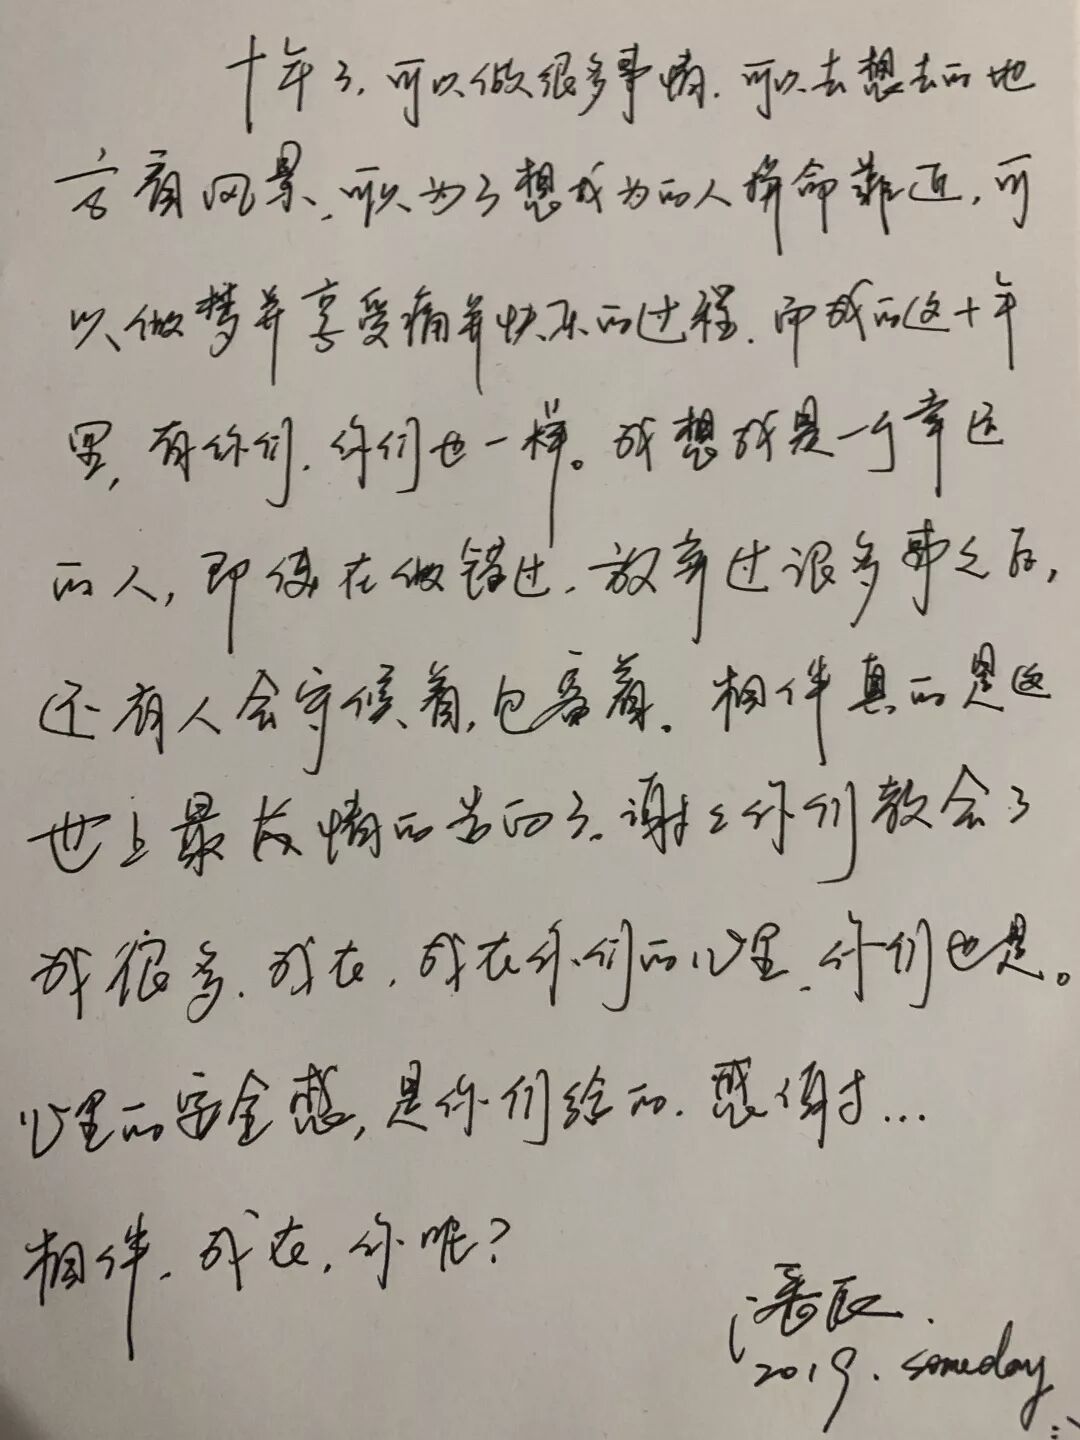 十年了,可以做很多事情,可以去想去的地
方看风景,可以为了想成为的人拼命靠近,可
以做梦并享受痛并快乐的过程,而我的这十年
里,有你们,你们也一样。我想我是一个幸运
的人,即使在做错过,放弃过很多事之后,
还有人会守候着,包容着。相伴真的是这
世上最长情的告白了,谢谢你们教会了
我很多,我在,我在你们的心里,你们也是。
心里的安全感,是你们给的,感谢...
相伴,我在,你呢?
潘辰.
2019. someday